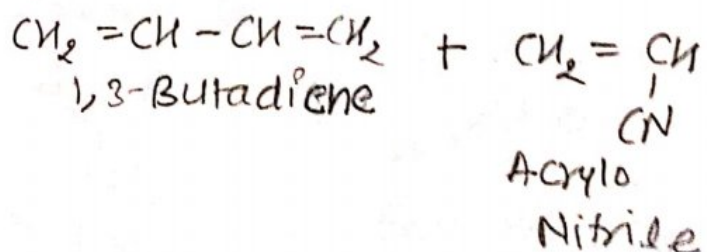 CH₂ = CH - CH = CH₂ + CH₂ = CH
|
CN
1,3-Butadiene
Acrylo
Nitrile